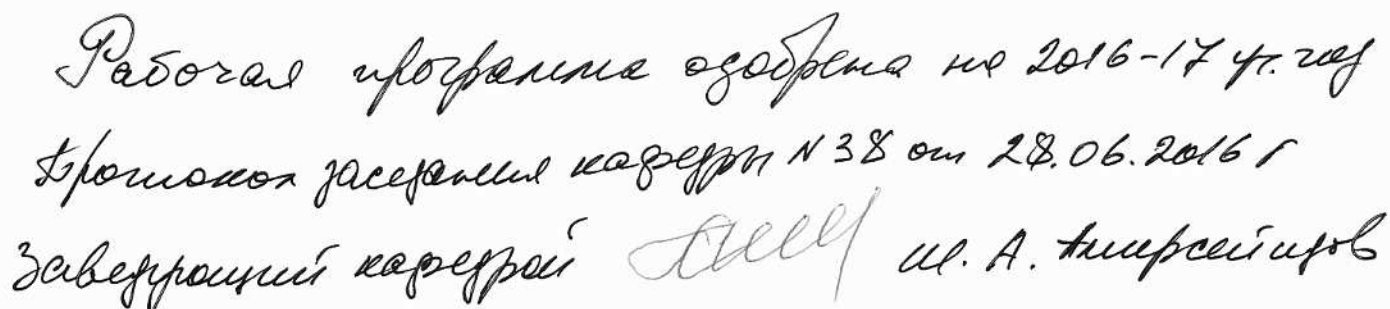 Рабочая программа одобрена на 2016-17 уч. год
Протокол заседания кафедры N 38 от 28.06.2016 г
Заведующий кафедрой Ш. А. Амирсейидов